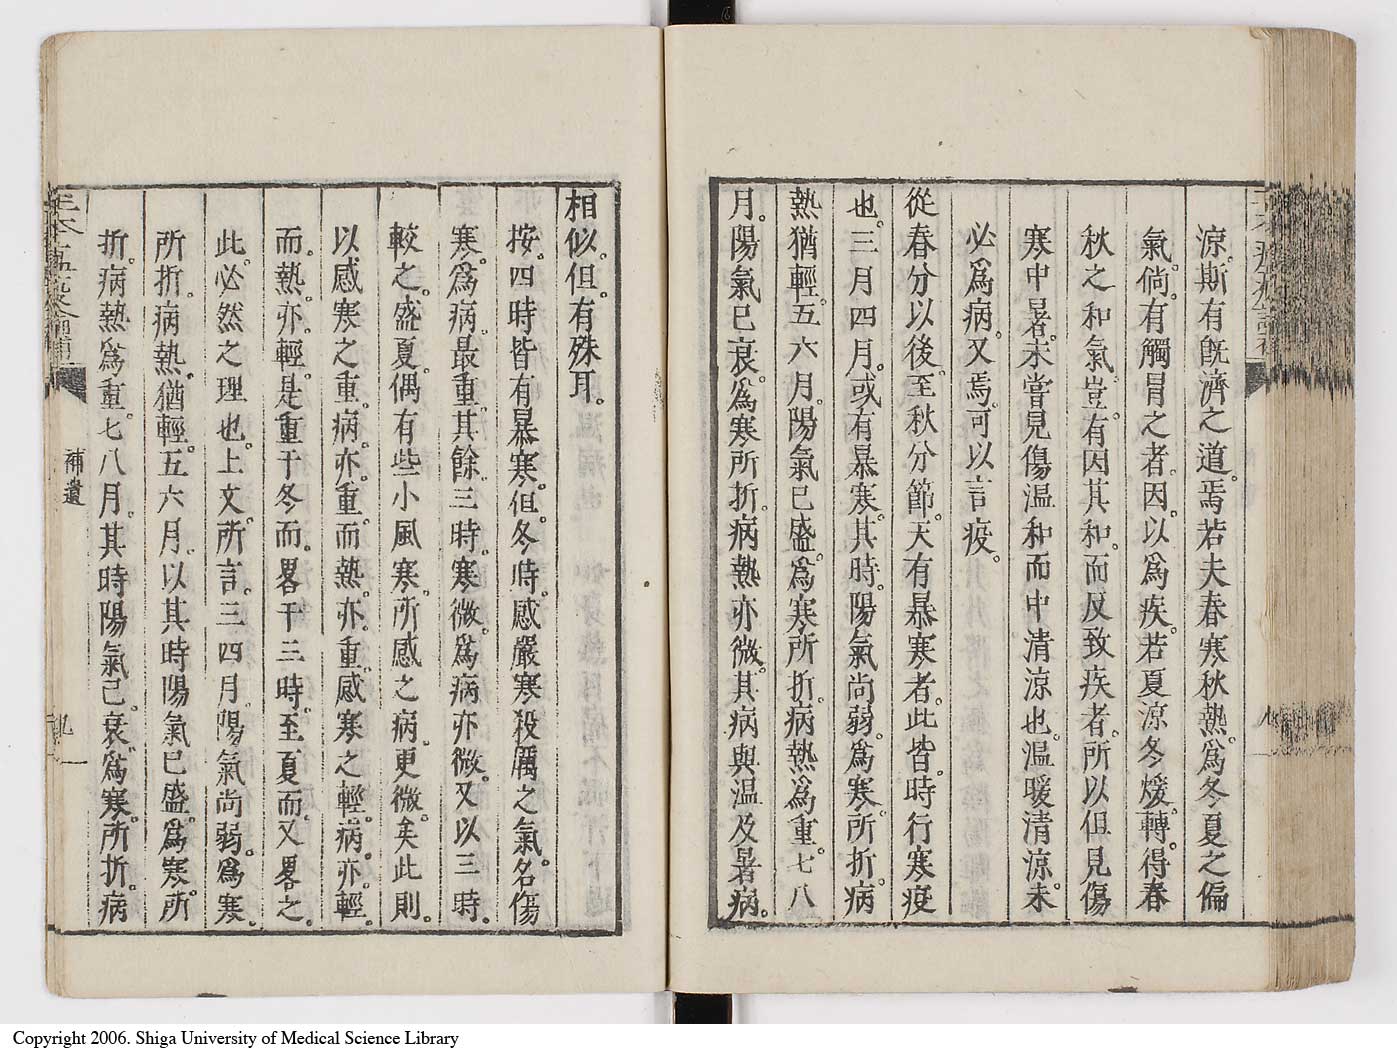 涼。斯有既濟之道。焉若夫春寒秋熱。爲冬夏之偏
氣倘。有觸冒之者。因。以爲疾。若夏涼冬煖。轉。得春
秋之和氣。豈。有因其和。而反致疾者。所以但見傷
寒中暑。未嘗見傷温和而中清涼也。温暖清涼。未
必爲病。又焉。可以言疫。
從春分以後。至秋分。節。天有暴寒者。此皆。時行寒疫
也。三月四月。或有暴寒。其時。陽氣尚弱。爲寒所折。病
熱猶輕。五六月。陽氣已盛。爲寒所折。病熱爲重。七八
月。陽氣已衰。爲寒所折。病熱亦微。其病與温及暑病。
相似。但。有殊耳。
按。四時皆有暴寒。但。冬時。感嚴寒殺厲之氣。名傷
寒。爲病。最重。其餘三時。寒微。爲病亦微。又以三時。
較之。盛夏。偶有些小風寒。所感之病。更微矣。此則。
以感寒之重。病。亦。重。而熱。亦。重。感寒之輕。病。亦。輕。
而。熱。亦。輕。是重于冬而。畧于三時。至夏而又畧之。
此。必然之理也。上文。所言。三四月。陽氣尚弱。爲寒。
所折。病熱。猶輕。五六月。以其時陽氣已盛。爲寒。所
折。病熱爲重。七八月。其時陽氣已。衰。爲寒。所折。病
補遺
九
Copyright 2006. Shiga University of Medical Science Library